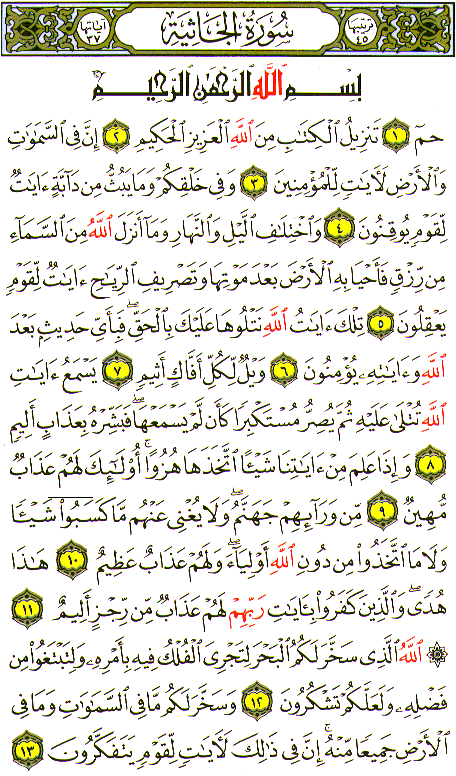 ترتيبها ٤٥ سُورَةُ الجَاثِيَةِ آياتها ٣٧
بِسْمِ ٱللَّهِ ٱلرَّحْمَٰنِ ٱلرَّحِيمِ
حمٓ ١ تَنزِيلُ ٱلْكِتَٰبِ مِنَ ٱللَّهِ ٱلْعَزِيزِ ٱلْحَكِيمِ ٢ إِنَّ فِى ٱلسَّمَٰوَٰتِ
وَٱلْأَرْضِ لَءَايَٰتٍ لِّلْمُؤْمِنِينَ ٣ وَفِى خَلْقِكُمْ وَمَا يَبُثُّ مِن دَآبَّةٍ ءَايَٰتٌ
لِّقَوْمٍ يُوقِنُونَ ٤ وَٱخْتِلَٰفِ ٱلَّيْلِ وَٱلنَّهَارِ وَمَآ أَنزَلَ ٱللَّهُ مِنَ ٱلسَّمَآءِ
مِن رِّزْقٍ فَأَحْيَا بِهِ ٱلْأَرْضَ بَعْدَ مَوْتِهَا وَتَصْرِيفِ ٱلرِّيَٰحِ ءَايَٰتٌ لِّقَوْمٍ
يَعْقِلُونَ ٥ تِلْكَ ءَايَٰتُ ٱللَّهِ نَتْلُوهَا عَلَيْكَ بِٱلْحَقِّ ۖ فَبِأَىِّ حَدِيثٍۭ بَعْدَ
ٱللَّهِ وَءَايَٰتِهِۦ يُؤْمِنُونَ ٦ وَيْلٌ لِّكُلِّ أَفَّاكٍ أَثِيمٍ ٧ يَسْمَعُ ءَايَٰتِ
ٱللَّهِ تُتْلَىٰ عَلَيْهِ ثُمَّ يُصِرُّ مُسْتَكْبِرًا كَأَن لَّمْ يَسْمَعْهَا ۖ فَبَشِّرْهُ بِعَذَابٍ أَلِيمٍ
٨ وَإِذَا عَلِمَ مِنْ ءَايَٰتِنَا شَيْـًٔا ٱتَّخَذَهَا هُزُوًا ۚ أُو۟لَٰٓئِكَ لَهُمْ عَذَابٌ
مُّهِينٌ ٩ مِّن وَرَآئِهِمْ جَهَنَّمُ ۖ وَلَا يُغْنِى عَنْهُم مَّا كَسَبُوا۟ شَيْـًٔا
وَلَا مَا ٱتَّخَذُوا۟ مِن دُونِ ٱللَّهِ أَوْلِيَآءَ ۖ وَلَهُمْ عَذَابٌ عَظِيمٌ ١٠ هَٰذَا
هُدًى ۖ وَٱلَّذِينَ كَفَرُوا۟ بِـَٔايَٰتِ رَبِّهِمْ لَهُمْ عَذَابٌ مِّن رِّجْزٍ أَلِيمٌ ١١
۞ ٱللَّهُ ٱلَّذِى سَخَّرَ لَكُمُ ٱلْبَحْرَ لِتَجْرِىَ ٱلْفُلْكُ فِيهِ بِأَمْرِهِۦ وَلِتَبْتَغُوا۟ مِن
فَضْلِهِۦ وَلَعَلَّكُمْ تَشْكُرُونَ ١٢ وَسَخَّرَ لَكُم مَّا فِى ٱلسَّمَٰوَٰتِ وَمَا فِى
ٱلْأَرْضِ جَمِيعًا مِّنْهُ ۚ إِنَّ فِى ذَٰلِكَ لَءَايَٰتٍ لِّقَوْمٍ يَتَفَكَّرُونَ ١٣